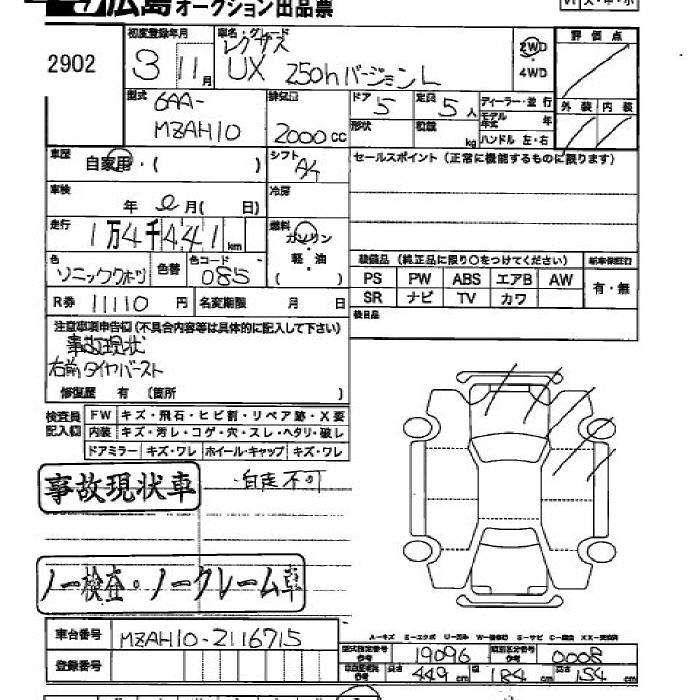 広島オークション出品票
2902
初度登録年月
3 11月
車名・グレード
レクサス
UX 250hバージョンL
2WD
4WD
評価点
外装 内装
型式
6AA-
MZAH10
排気量
2000cc
ドア 5
定員 5人
形状
積載 kg
ディーラー・並行
モデル年式 年
ハンドル 左・右
車歴
自家用・( )
シフト
AT
セールスポイント(正常に機能するものに限ります)
車検
年 月( 日)
冷房
走行
1万4千441km
燃料
ガソリン
軽・油
( )
色
ソニッククォーツ
色替
色コード
085
装備品(純正品に限り○をつけてください)
新車保証行
PS PW ABS エアB AW
有・無
SR ナビ TV カワ
後日品
R券 11110円
名変期限 月 日
注意事項申告欄(不具合内容等は具体的に記入して下さい)
事故現状
右前タイヤバースト
修復歴 有 (箇所 )
検査員
記入欄
FW キズ・飛石・ヒビ割・リペア跡・X要
内装 キズ・汚レ・コゲ・穴・スレ・ヘタリ・破レ
ドアミラー キズ・ワレ ホイール・キャップ キズ・ワレ
事故現状車
・自走不可
ノー検査・ノークレーム車
車台番号
MZAH10-2116715
登録番号
A-キズ E-エクボ U-凹み W-補修跡 S-サビ C-腐蝕 XX-交換済
型式指定番号
参考
19096
類別区分番号
参考
0008
長さ
449cm
184cm
高さ
154cm